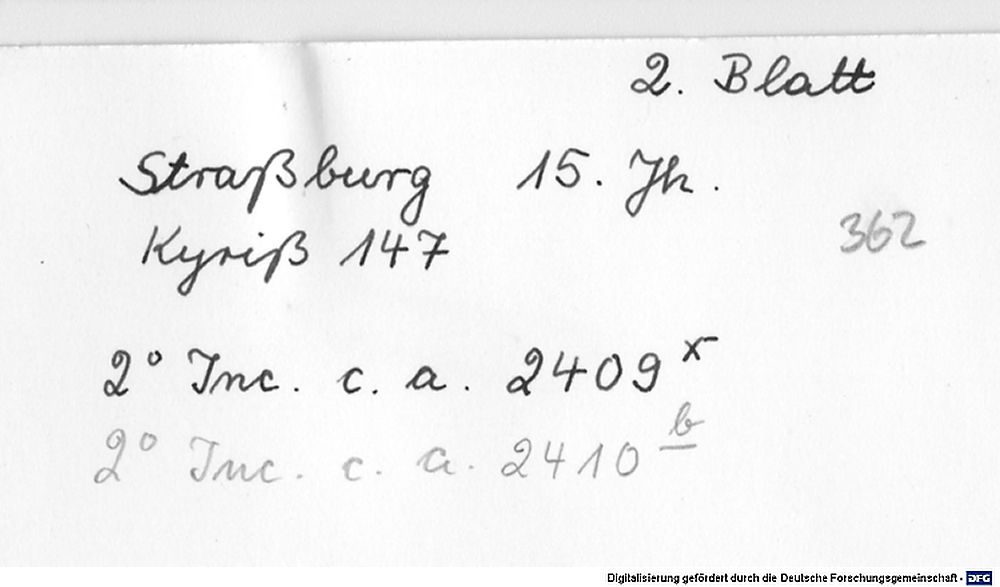 2. Blatt
Straßburg 15. Jh.
Kyriß 147
362
2° Inc. c. a. 2409 x
2° Inc. c. a. 2410 b
Digitalisierung gefördert durch die Deutsche Forschungsgemeinschaft - DFG